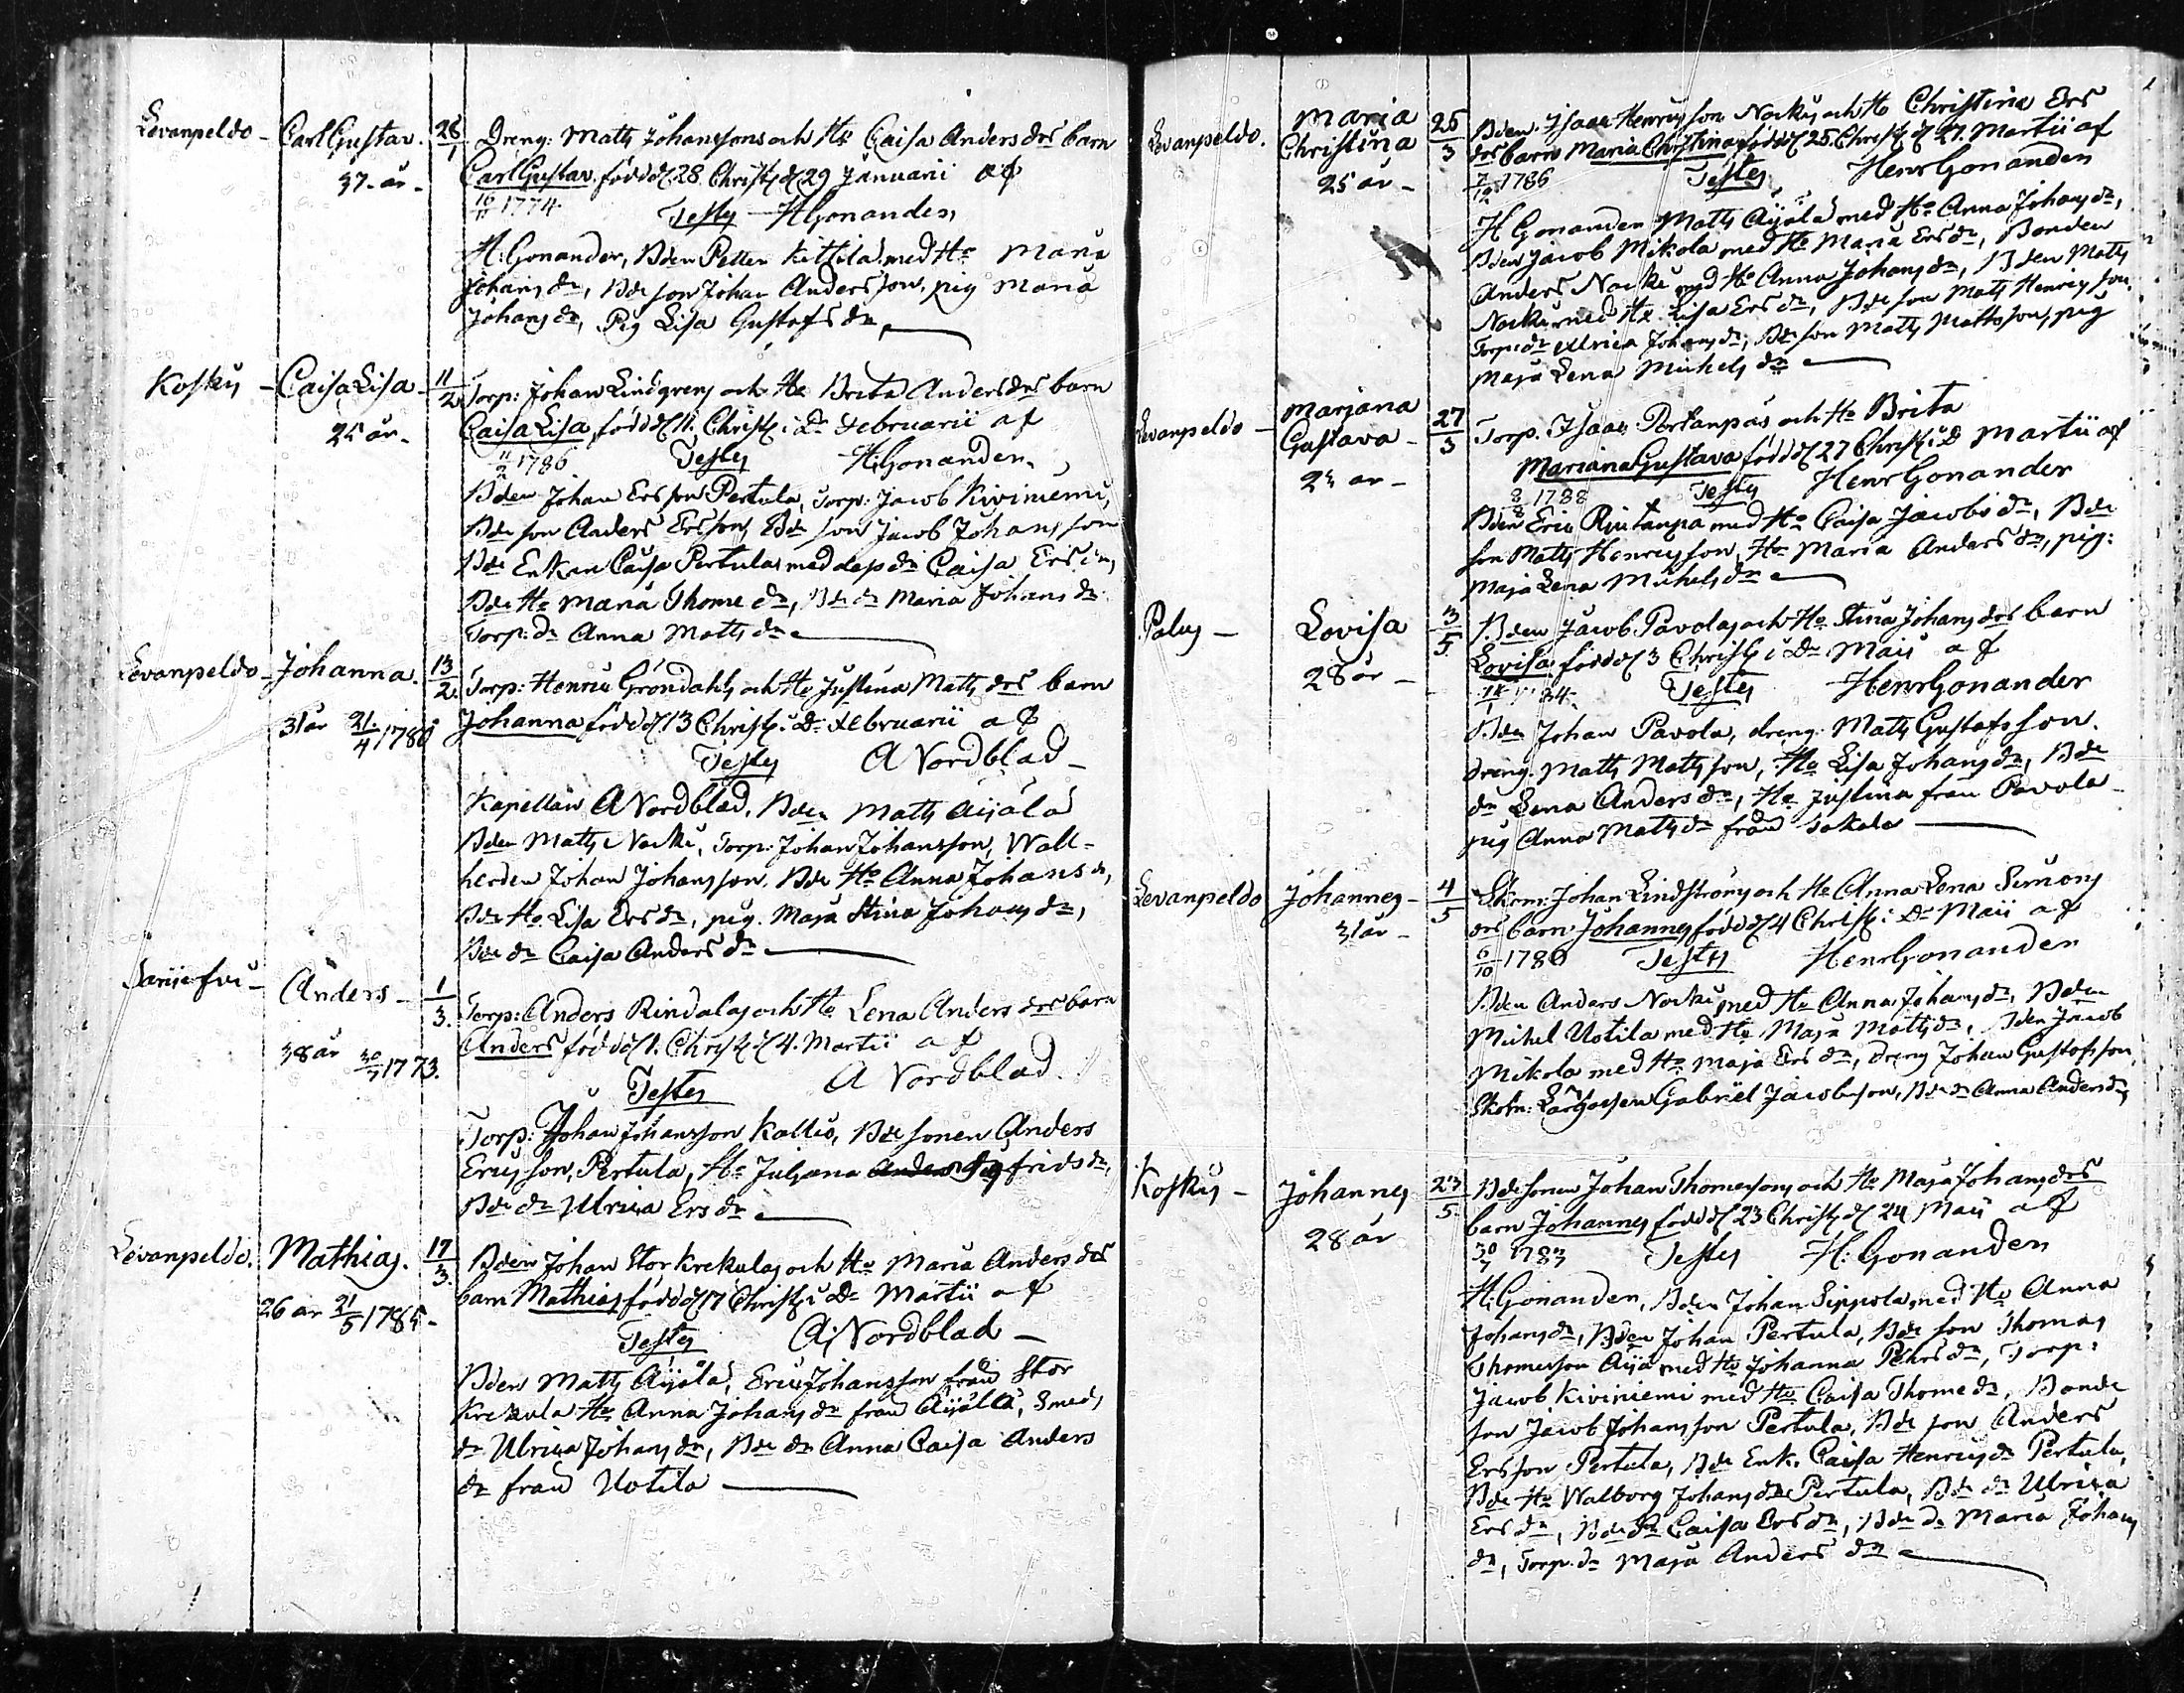 Levanpeldo - Carl Gustav. 28/1 Dreng: Matts Johanssons och Hu Caisa Anders drs barn
37. år - Carl Gustav, född d 28. Christ. d 29 Januari af
16/11 1774. Testes H Gonander,
H: Gonander, Bden Petter Kittila med Hu Maria
Johans dr, Bde son Johan Andersson, pig Maria
Johans dr, Pig Lisa Gustafs dr,
Koskis - Caisa Lisa - 11/2 Torp: Johan Lindgrens och Hu Brita Anders drs barn
25 år - Caisa Lisa, född d 11. Christ. i do Februarii af
11/2 1786 Testes H: Gonander.
Bden Johan Ersson Pertula, Torp: Jacob Kiviniemi,
Bde son Anders Ersson, Bde son Jacob Johansson
Bde Enkan Caisa Pertula med dess dr Caisa Ers dr,
Bde Hu Maria Thome dr, Bde dr Maria Johans dr
Torp. dr Anna Matts dr
Levanpeldo - Johanna. 13/2. Torp: Henric Gröndahls och Hu Justina Matts drs barn
31 år 21/4 1780 Johanna född d 13 Christ. i do Februarii af
Testes A Nordblad -
Kapellan A Nordblad. Bden Matts Äijälä
Bden Matts Nocku, Torp: Johan Johansson, Wall-
herden Johan Johansson. Bde Hu Anna Johans dr,
Bde Hu Lisa Ers dr, pig. Maja Stina Johans dr,
Bde dr Caisa Anders dr
Anders - 1/3. Torp: Anders Rindalas och Hu Lena Anders drs barn
38 år 30/7 1773. Anders född d 1. Christ. d 4. Martii af
Testes A Nordblad.
Torp: Johan Johansson Kallio, Bde sonen Anders
Ericsson, Pertula, Hu Juliana frids dr,
Bde dr Ulrica Ers dr
Levanpeldo. Mathias. 17/3. Bden Johan Storkrekulas och Hu Maria Anders drs
26 år 21/5 1785 - barn Mathias född d 17 Christ. i do Martii af
Testes A: Nordblad -
Bden Matts Äijälä, Eric Johansson från Stor
Krekula Hu Anna Johans dr från Äijälä, Smeds
dr Ulrica Johans dr, Bde dr Anna Caisa Anders
dr från Uotila
Levanpeldo. Maria Christina 25/3 Bden. Isaac Henricsson Nockus och Hu Christina Ers
25 år - drs barn Maria Christina född d 25. Christ. d 27. Martii af
7/12 1786 Testes Henr Gonander
H Gonander Matts Äijälä med Hu Anna Johans dr,
Bden Jacob Mikola med Hu Maria Ers dr, Bonden
Anders Nocku med Hu Anna Johans dr, Bden Matts
Nocku med Hu Lisa Ers dr, Bde son Matts Henricsson.
Torp. dr Ulrica Johans dr, Bde son Matts Mattsson, pig
Maja Lena Michels dr
Levanpeldo - Mariana Gustava - 27/3 Torp. Isaac Portanpäs och Hu Brita
Mariana Gustava född d 27 Christ. i do Martii af
1788 Testes Henr Gonander
Bden Eric Rintanpä med Hu Caisa Jacobs dr, Bde
son Matts Henricsson, Hu Maria Anders dr, pig:
Maja Lena Michels dr
Palus - Lovisa 3/5. Bden Jacob Pavolas och Hu Stina Johans drs barn
28 år - Lovisa född d 3 Christ. i do Maii af
Testes Henr Gonander
Bden Johan Pavola, dreng. Matts Gustafsson.
dreng. Matts Mattsson, Hu Lisa Johans dr, Bde
dr Lena Anders dr, Hu Justina från Pavola -
pig Anna Matts dr från Jokela
Levanpeldo Johannes - 4/5 Skom: Johan Lindströms och Hu Anna Lena Simons
31 år - drs barn Johannes född d 4 Christ. i do Maii af
6/10 1780 Testes Henr Gonander
Bden Anders Nocku med Hu Anna Johans dr, Bden
Michel Uotila med Hu Maja Matts dr, Bden Jacob
Mikola med Hu Maja Ers dr, dreng Johan Gustafsson.
Skom: Gabriel Jacobsson, Bde dr Anna Anders dr,
Koskis - Johannes 23/5. Bde sonen Johan Thomessons och Hu Maja Johans drs
28 år barn Johannes född d 23 Christ. d 24 Maii af
30/7 1783 Testes H: Gonander
H: Gonander, Bden Johan Sippola, med Hu Anna
Johans dr, Bden Johan Pertula, Bde son Thomas
Thomesson Äijä med Hu Johanna Pehrs dr, Torp:
Jacob Kiviniemi med Hu Caisa Thome dr, Bonde
son Jacob Johansson Pertula, Bde son Anders
Ersson Pertula, Bde Enk. Caisa Henrics dr Pertula,
Bde Hu Walborg Johans dr Pertula, Bde dr Ulrica
Ers dr, Bde dr Caisa Ers dr, Bde dr Maria Johans
dr, Torp. dr Maja Anders dr